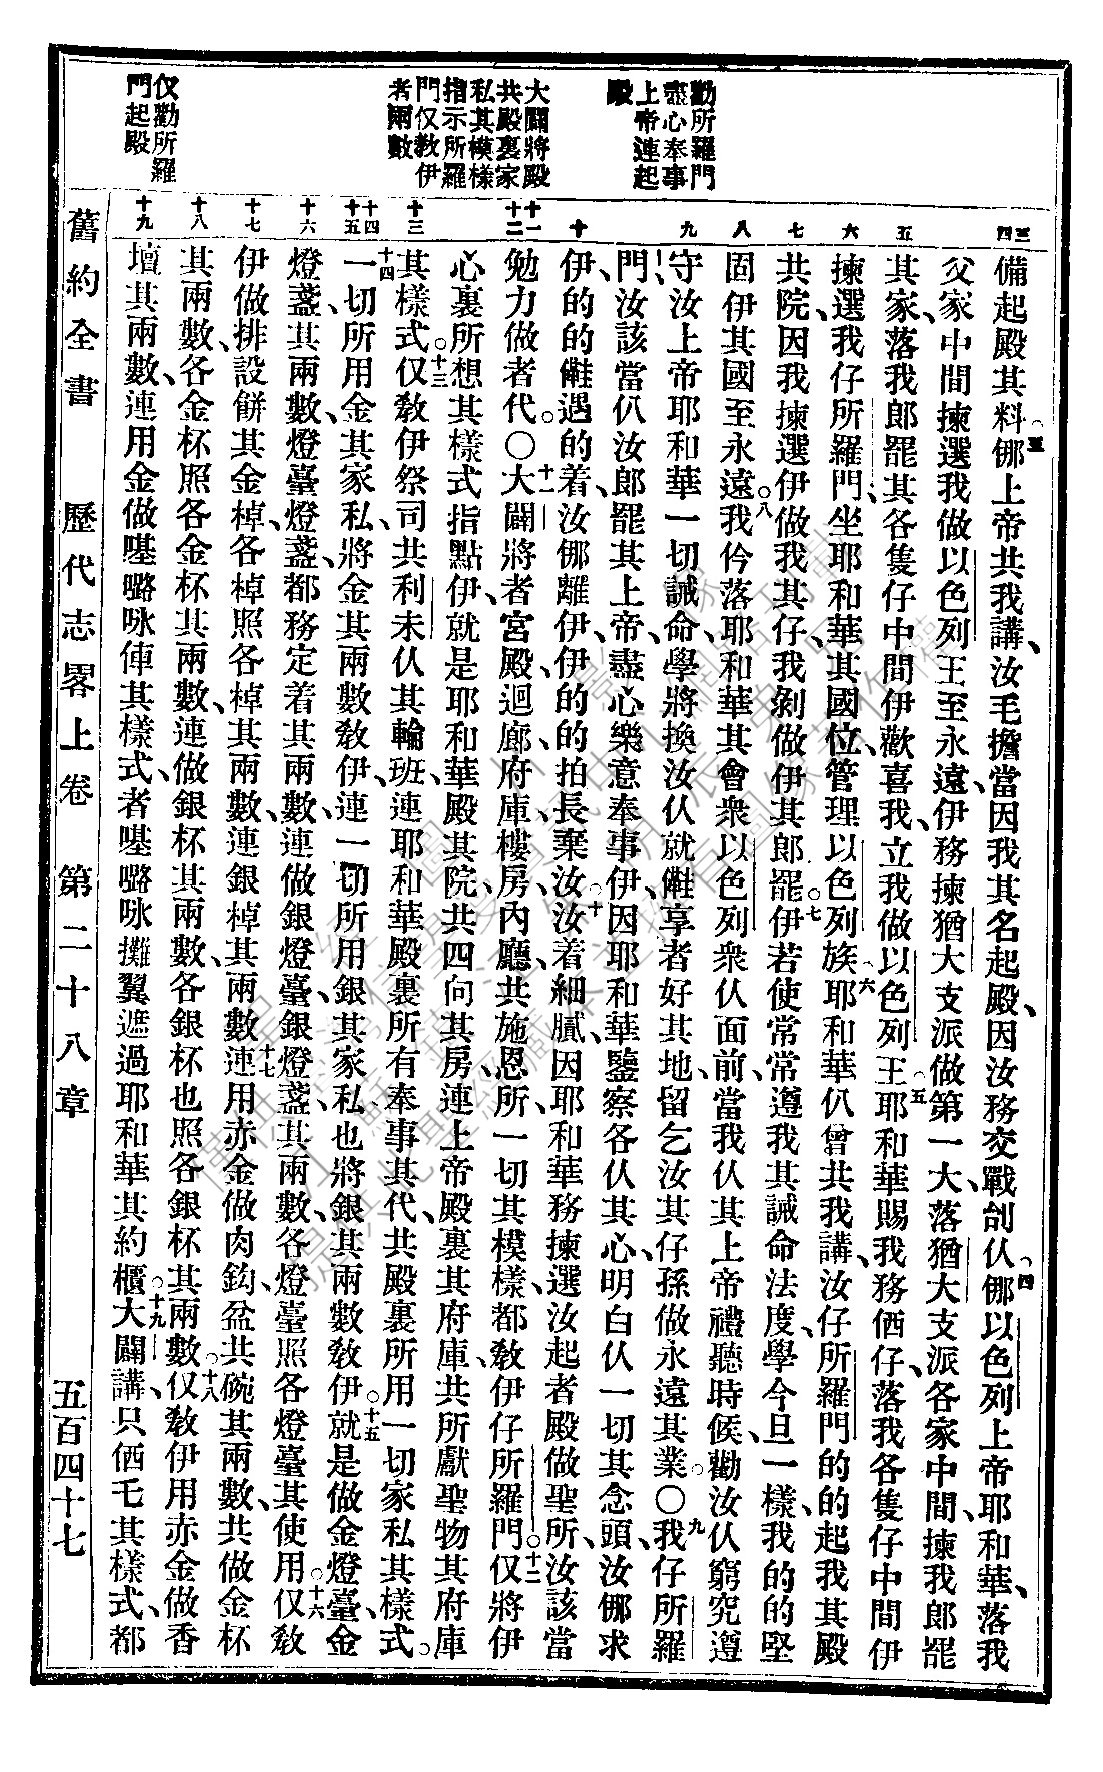 勸所羅門
盡心奉事
上帝連起
殿
大闢將殿
共殿裏家
私其模樣
指示所羅
門仅教伊
考兩數
仅勸所羅
門起殿
三 四 五 六 七 八 九 十 十一 十二 十三 十四 十五 十六 十七 十八 十九
備起殿其料。三㑚上帝共我講、汝毛擔當因我其名起殿、因汝務交戰刣仈。四㑚以色列上帝耶和華、落我
父家中間揀選我做以色列王至永遠、伊務揀猶大支派做第一大、落猶大支派各家中間、揀我郎罷
其家、落我郎罷其各隻仔中間伊歡喜我、立我做以色列王。五耶和華賜我務価仔、落我各隻仔中間伊
揀選我仔所羅門、坐耶和華其國位、管理以色列族。六耶和華仈曾共我講、汝仔所羅門的的起我其殿
共院、因我揀選伊做我其仔、我剝做伊其郎罷。七伊若使常常遵我其誡命法度、學今旦一樣、我的的堅
固伊其國至永遠。八我仱落耶和華其會衆以色列衆仈面前、當我仈其上帝禮聽時候、勸汝仈窮究遵
守汝上帝耶和華一切誡命、學將換汝仈就㑃享者好其地、留乞汝其仔孫做永遠其業。〇九我仔所羅
門、汝該當仈汝郎罷其上帝、盡心樂意奉事伊、因耶和華鑒察各仈其心、明白仈一切其念頭、汝㑚求
伊的的㑃遇的着、汝㑚離伊、伊的的拍長棄汝。十汝着細膩、因耶和華務揀選汝起者殿做聖所、汝該當
勉力做者代。〇十一大闢將者宮殿、迴廊府庫樓房、內廳、共施恩所、一切其模樣、都教伊仔所羅門。十二仅將伊
心裏所想其樣式指點伊、就是耶和華殿其院、共四向其房、連上帝殿裏其府庫、共所獻聖物其府庫
其樣式。十三仅教伊祭司共利未仈其輪班、連耶和華殿裏所有奉事其代、共殿裏所用一切家私其樣式。
十四一切所用金其家私、將金其兩數教伊、連一切所用銀其家私也將銀其兩數教伊。十五就是做金燈臺、金
燈盞、其兩數、燈臺燈盞、都務定着其兩數、連做銀燈臺、銀燈盞其兩數、各燈臺照各燈臺其使用。十六仅教
伊做排設餅其金棹、各棹照各棹其兩數、連銀棹其兩數。十七連用赤金做肉鈎、盆共碗其兩數、共做金杯
其兩數、各金杯照各金杯其兩數、連做銀杯其兩數、各銀杯也照各銀杯其兩數。十八仅教伊用赤金做香
壇其兩數、連用金做𡀔嚕咏俥其樣式、者𡀔嚕咏攤翼遮過耶和華其約櫃。十九大闢講、只価乇其樣式、都
舊約全書 歷代志畧上卷 第二十八章 五百四十七